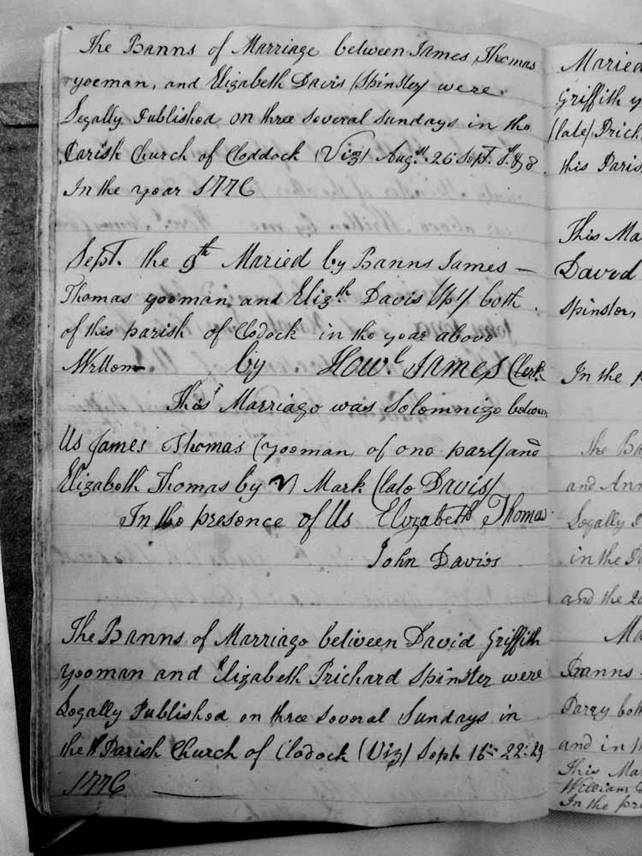 The Banns of Marriage between James Thomas
yoeman, and Elizabeth Davis (Spinster) were
Legally Published on three several Sundays in the
Parish Church of Cloddock (Viz) Augst. 26 Sept. 1st & 8
In the year 1776
Sept. the 9th Maried by Banns James -
Thomas yoeman, and Elizth Davis (Sp) both
of this parish of Clodock in the year above
Written by Howl James Clerk
This Marriage was Solemnize between
Us James Thomas (yoeman of one part) and
Elizabeth Thomas by Mark (late Davis)
In the presence of Us Elizabeth Thomas
John Davies
The Banns of Marriage between David Griffith
yoeman and Elizabeth Prichard Spinster were
Legally Published on three Several Sundays in
the Parish Church of Clodock (Viz) Sept. 16 22 29
1776
Maried
Griffith y
(late) Prich
this Paris
This Ma
David
Spinster,
In the p
the Ba
and Ann
Legally
in the
and the
Ma
Banns
Parry both
and in
This Mar
William
In the pre